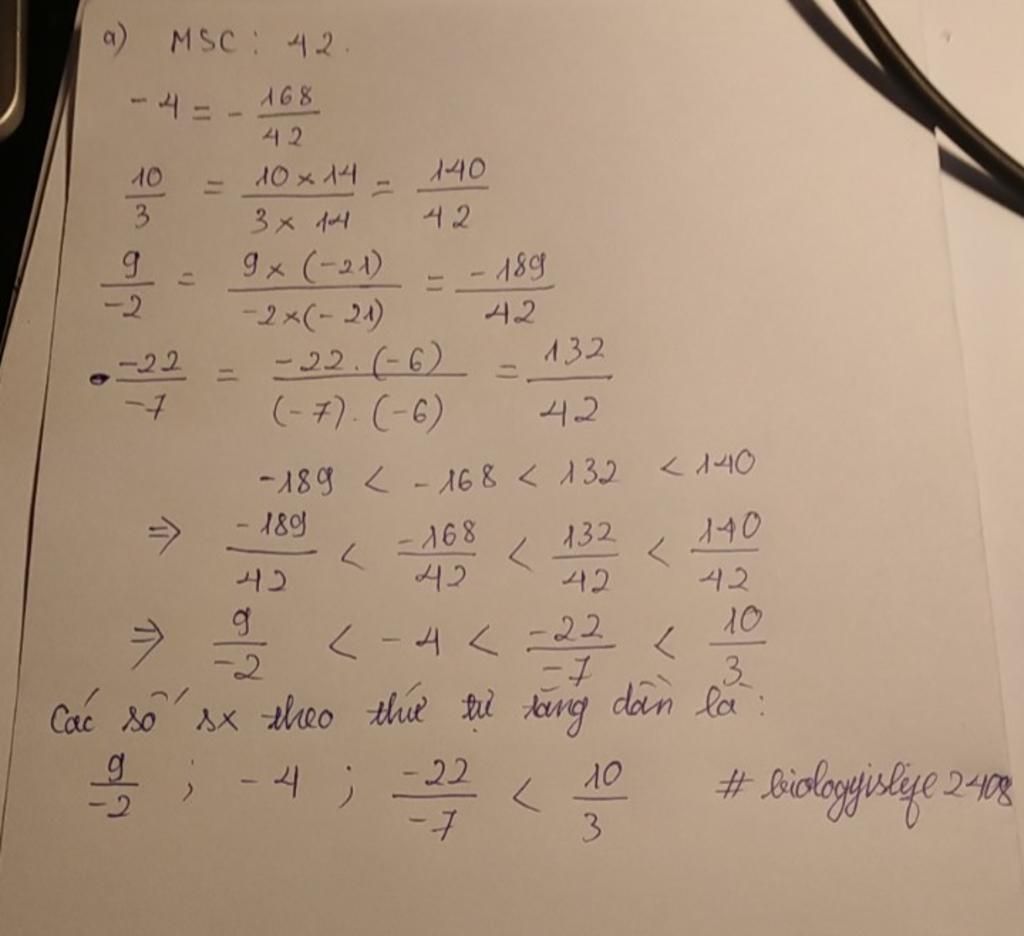 a) MSC: 42.
-4 = -168/42
10/3 = 10 × 14/3 × 14 = 140/42
9/-2 = 9 × (-21)/-2 × (-21) = -189/42
-22/-7 = -22 . (-6)/(-7) . (-6) = 132/42
-189 < -168 < 132 < 140
⇒ -189/42 < -168/42 < 132/42 < 140/42
⇒ 9/-2 < -4 < -22/-7 < 10/3
Các số sx theo thứ tự tăng dần là:
9/-2 ; -4 ; -22/-7 < 10/3 # biologyislife2408